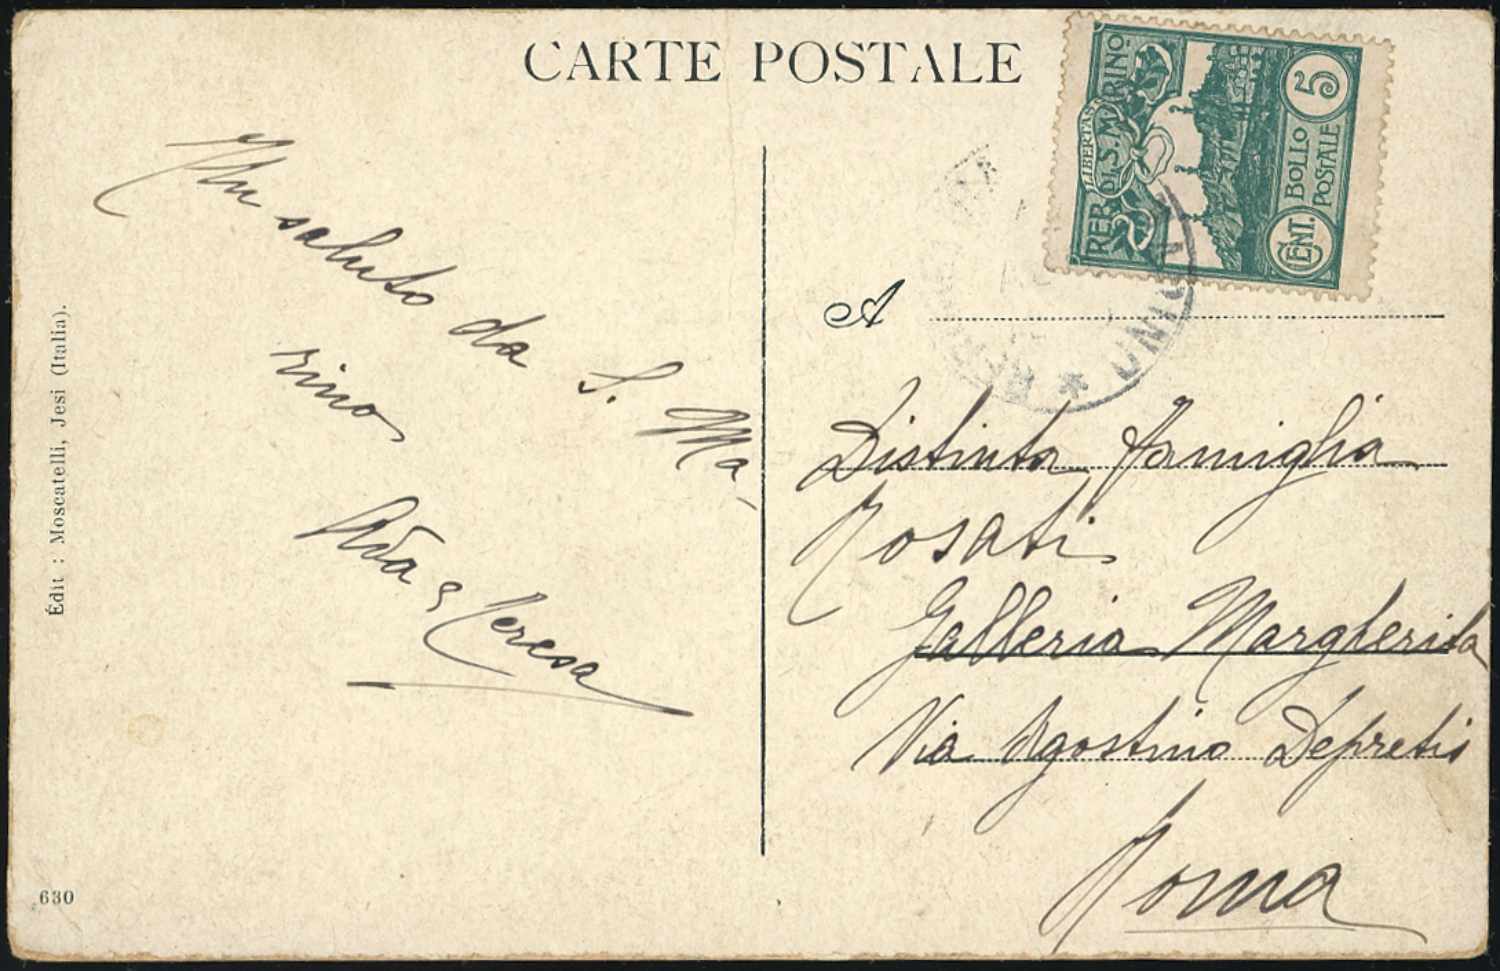 CARTE POSTALE
Un saluto da S. Ma-
rino
Ada e Teresa
Édit : Moscatelli, Jesi (Italia).
630
REP. DI S. MARINO
LIBERTAS
5
BOLLO
POSTALE
CENT.
A
Distinta Famiglia
Rosati
Galleria Margherita
Via Agostino Depretis
Roma